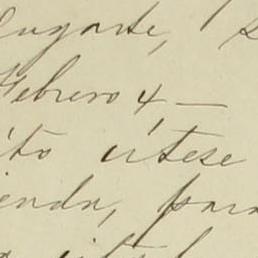 ugarte,
Febrero 4 —
ito cítese
ienda, para